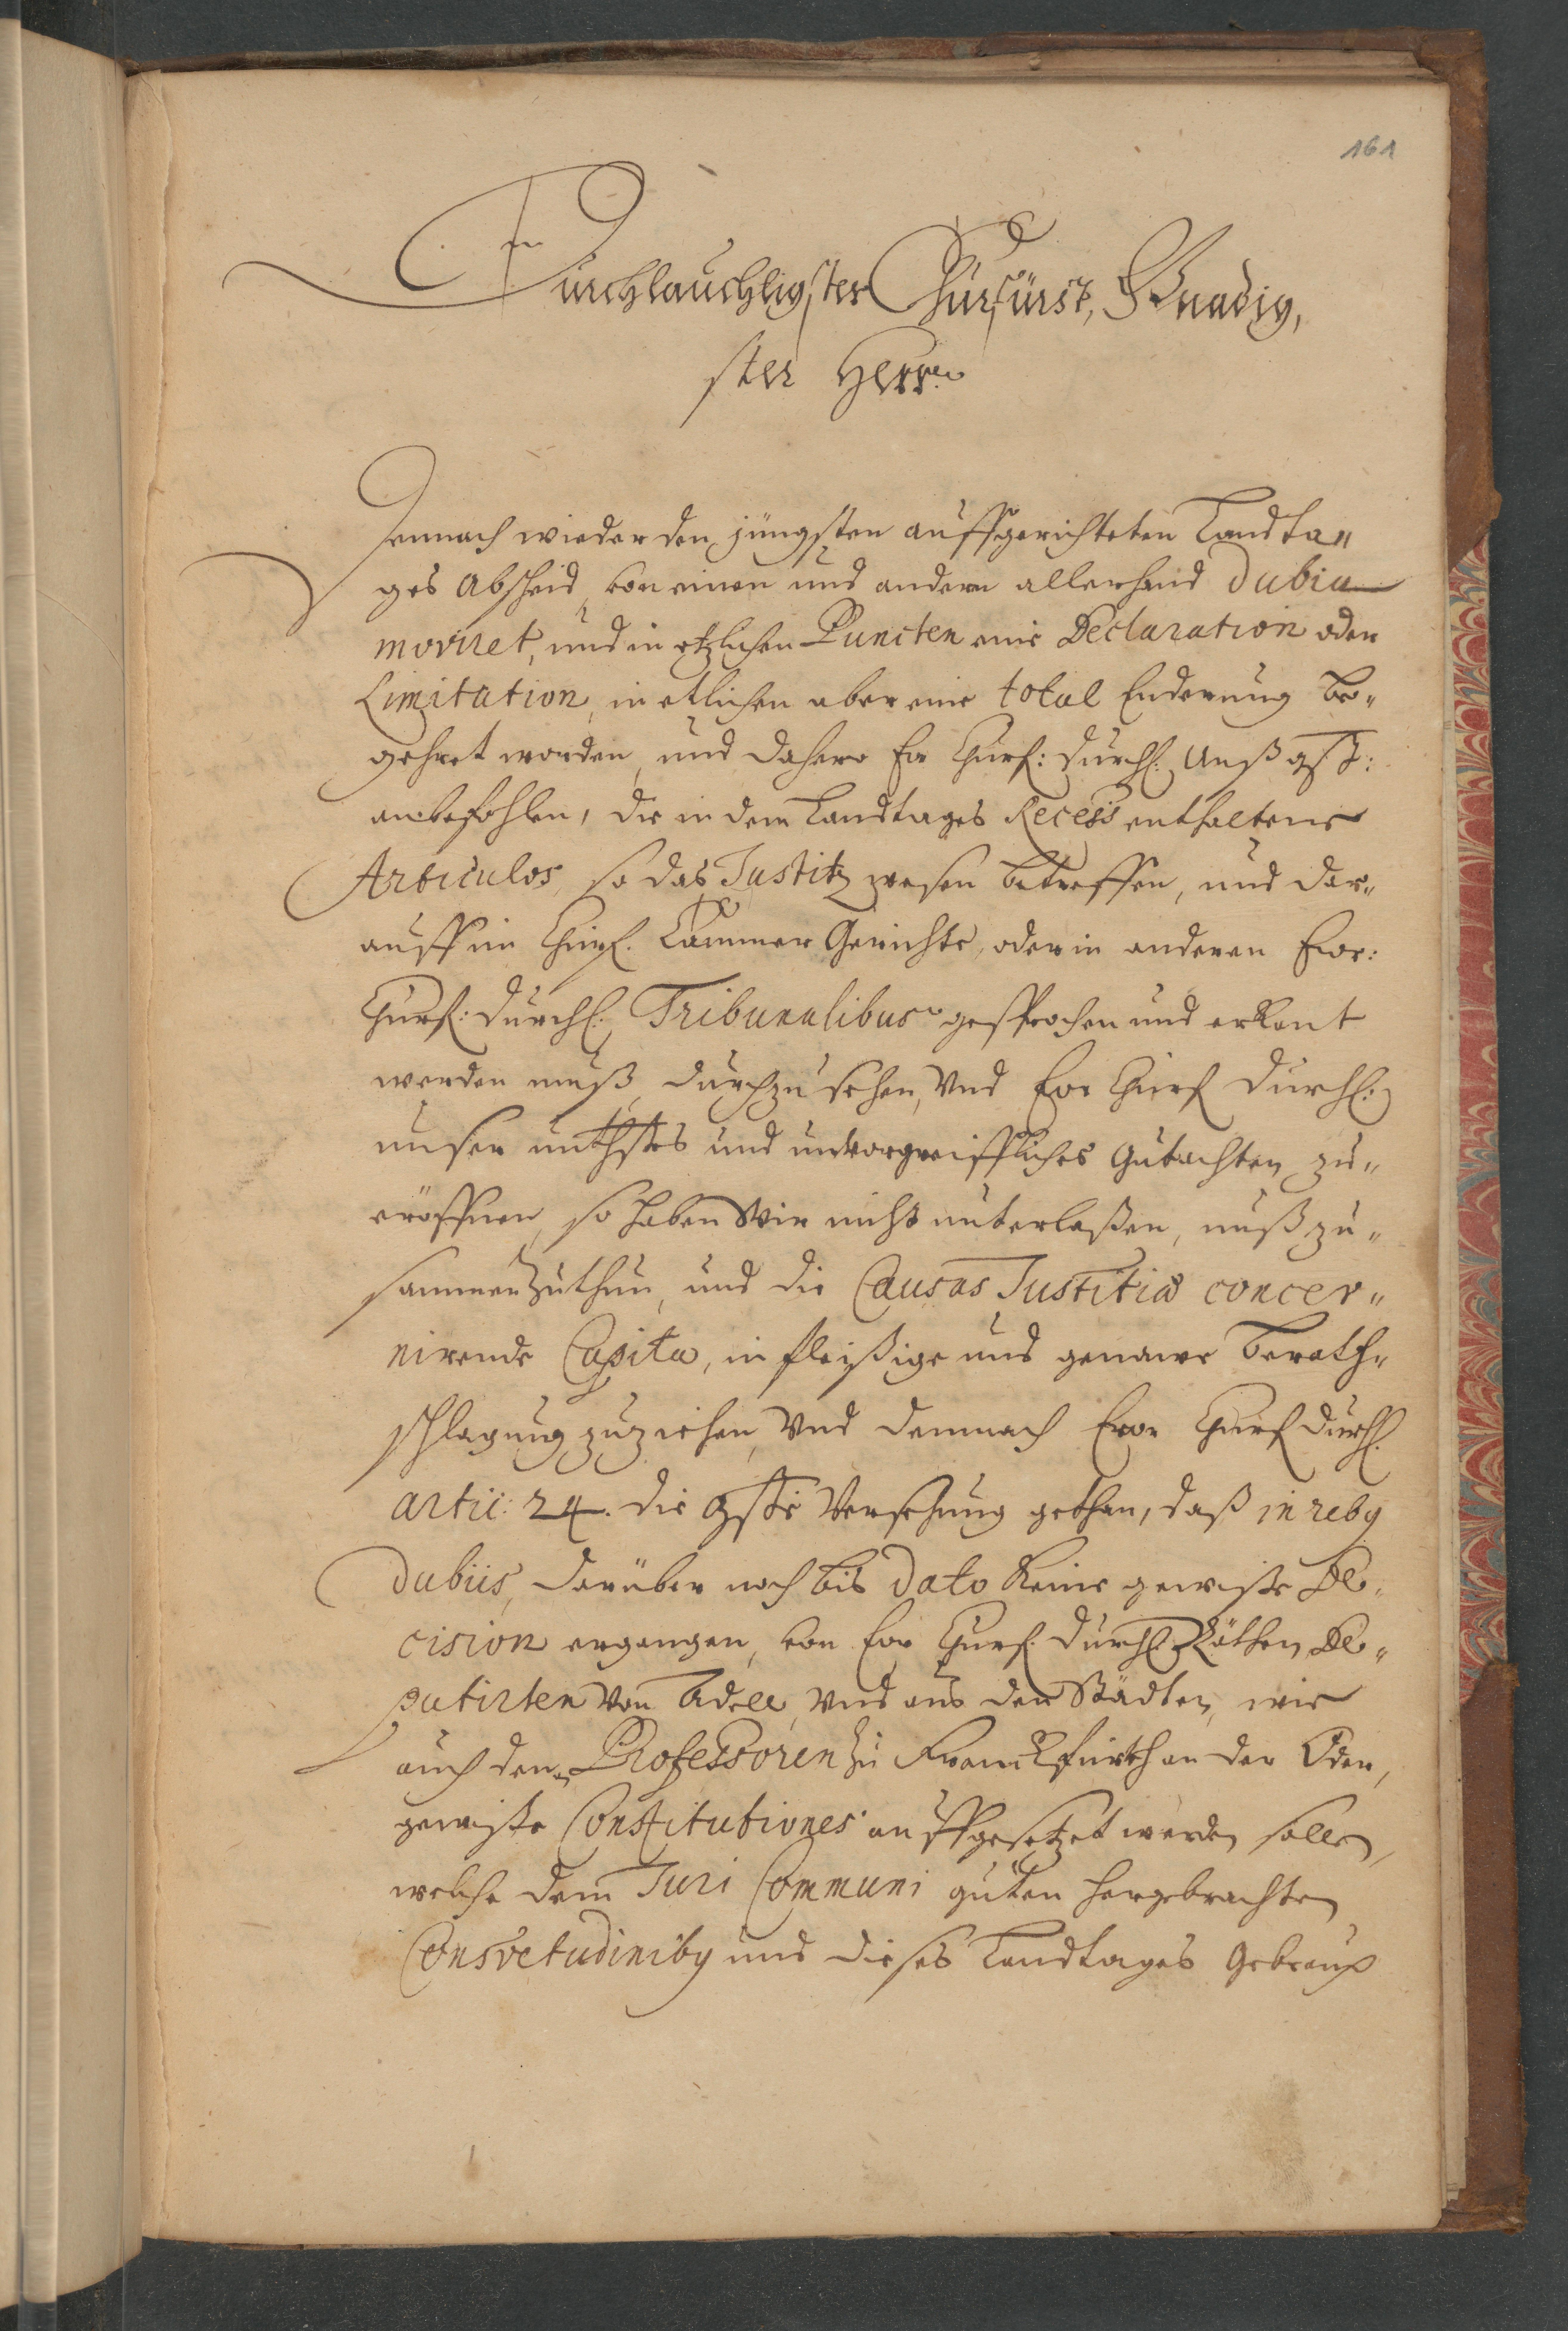 161
Durchlauchtigster Churfürst, Gnädig,
ster Herr
Demnach wieder den jüngsten auffgerichteten Landta„
ges Abscheid, von einen und andern allerhand dubia
moviret, und in etzlichen Puncten eine Declaration oder
Limitation, in etlichen aber eine total Enderung be„
gehret worden, und dahero Ew Churf: Durchl: Unß gst:
anbefohlen, die in dem Landtages Recess enthaltene
Articulos, so das Justitz wesen betreffen, und dar„
auff im Churf. Cammer Gerichte, oder in anderen Ewr:
Churf: Durchl: Tribunalibus gesprochen und erkant
werden muß, durchzusehen, Vnd Ewr Churf Durchl:
unser unthstes und unvorgreiffliches Gutachten zu„
eröffnen, so haben Wir nicht unterlaßen, unß zu„
sammen zuthun, und die Causas Justitiæ concer„
nirende Capita, in fleißige und genawe berath„
schlagung zuziehen, Vnd demnach Ewr Churf Durchl.
artic: 24. die gste Versehung gethan, daß in reby
dubiis, darüber noch bis dato keine gewiße De„
cision ergangen, von Ewr Churf. Durchl Räthen, De„
putirten Von Adell, Vnd aus den Städten, wie
auch den Professoren zu Franckfurth an der Oder,
gewiße Constitutiones auffgesetzet werden sollen,
welche dem Juri Communi guten hergebrachten
Consvetudiniby und dieses Landtages Gebrauch